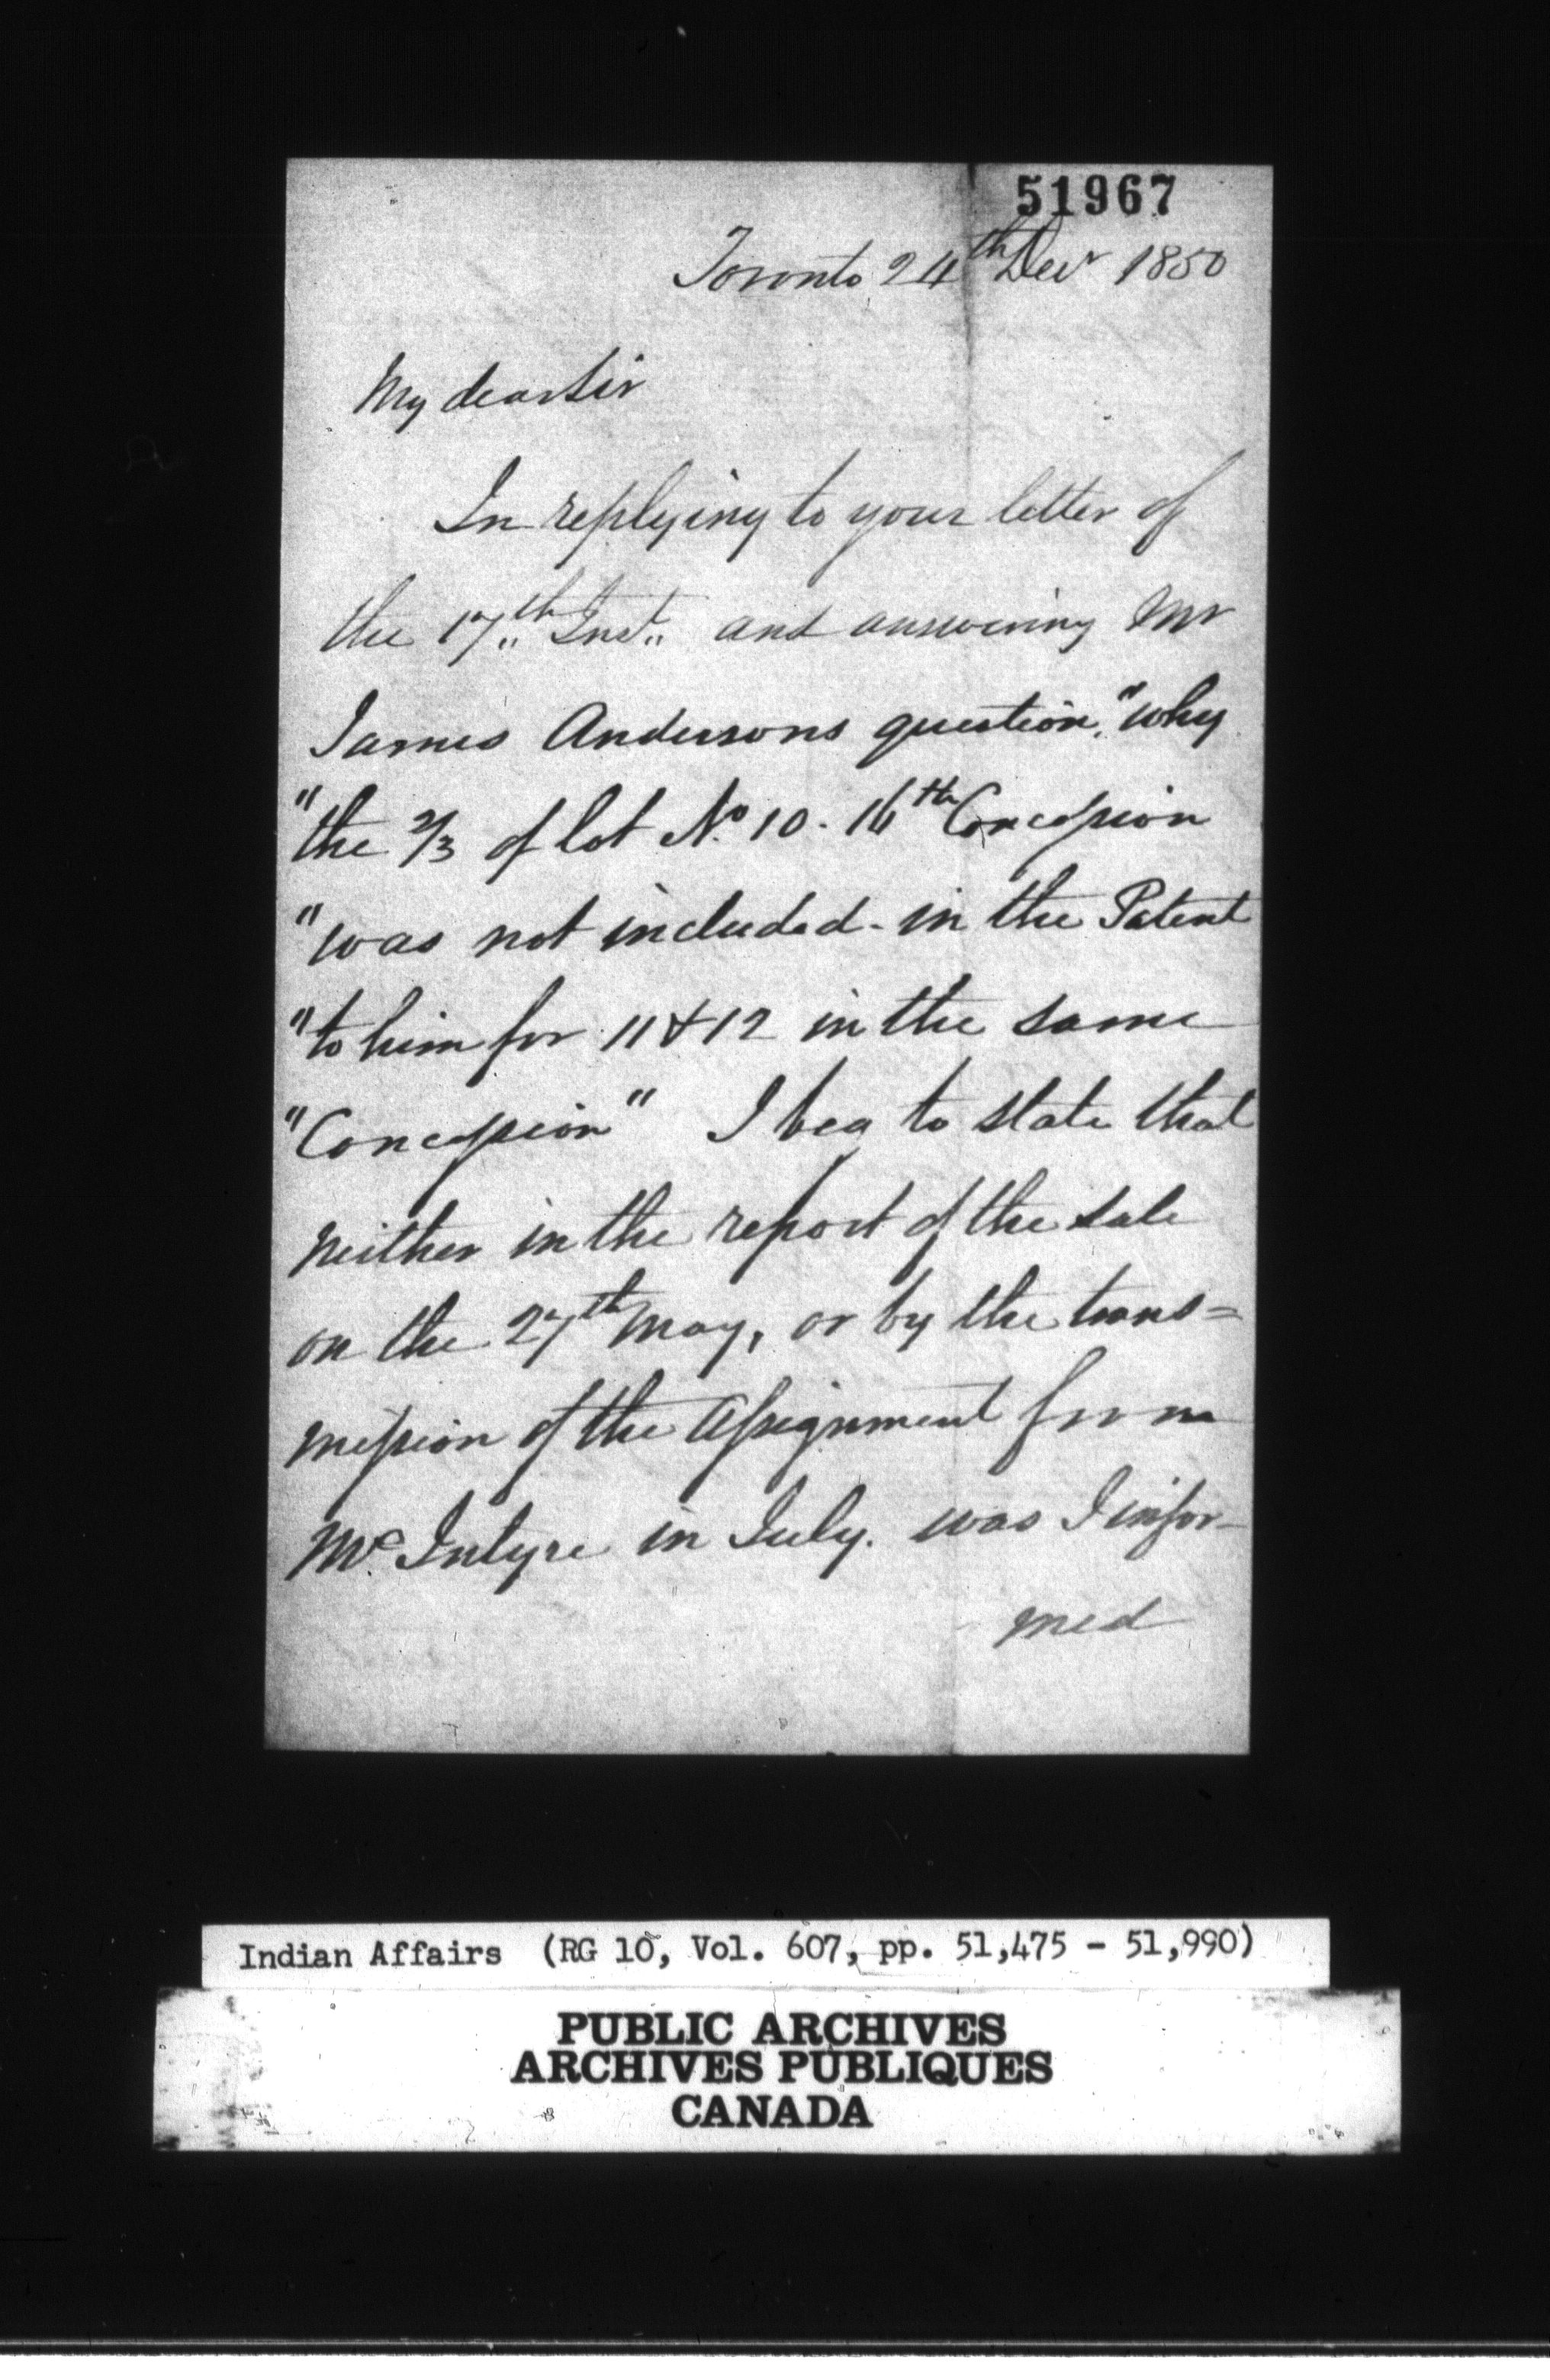 51967
Toronto 24th Decr 1850
My dear Sir
In replying to your letter of
the 17th Inst. and answering Mr
James Andersons question, "why
"the 2/3 of lot No 10. 16th Concession
"was not included in the Patent
"to him for 11 & 12 in the same
"Concession" I beg to state that
neither in the report of the sale
on the 27th May, or by the trans=
mission of the Assignment from
Mc Intyre in July. was I infor-
med
Indian Affairs (RG 10, Vol. 607, pp. 51,475 - 51,990)
PUBLIC ARCHIVES
ARCHIVES PUBLIQUES
CANADA